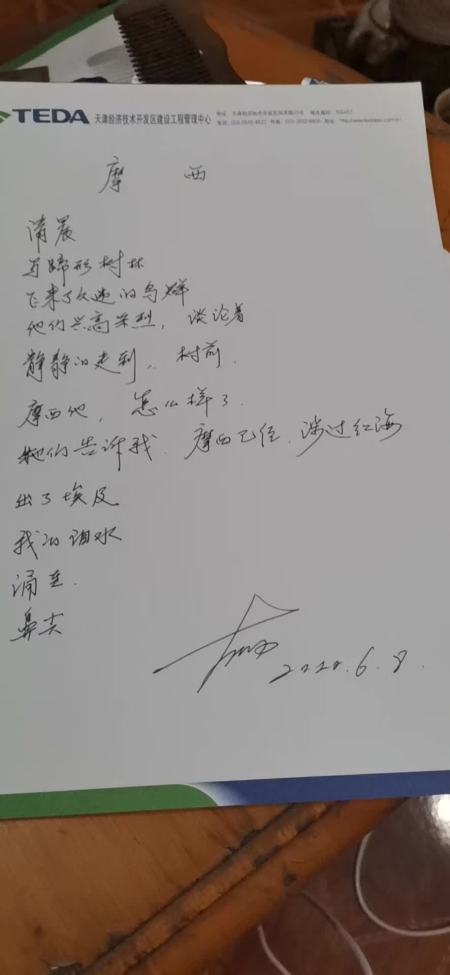 TEDA 天津经济技术开发区建设工程管理中心
摩 西
清晨
马蹄形树林
飞来了久违的鸟群
他们兴高采烈，谈论着
静静的走到，树前．
摩西他，怎么样了．
她们告诉我．摩西已经．涉过红海
出了埃及
我的泪水
涌至．
鼻尖
2020.6.8.